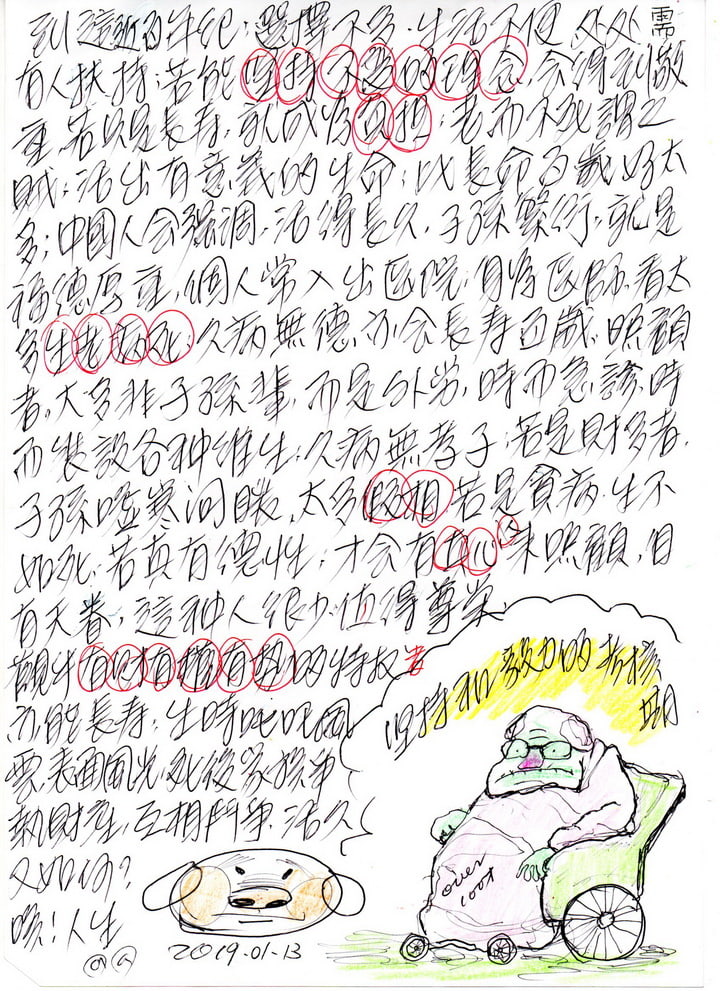 到這逝的年紀；選擇不多．生活不便 处处需
有人扶持；若能堅持不變的理念．会得到敬
重．若只是長寿；就成為負担；老而不死謂之
賊；活出有意義的生命；比長命百歲好太
多；中國人会强调．活得長久．子孫繁衍．就是
福德厚重，個人常入出医院；自為医師．看太
多生老病死；久病無德．亦会長寿百歲．照顧
者．大多非子孫輩．而是外劳．時而急診．時
而裝設各种維生；久病無孝子；若是財多者．
子孫噓寒问暖．太多假相．若是貧病．生不
如死；若真有德性；才会有真心人来照顧，自
有天眷，這种人很少．值得尊崇
觀乎有財有權有勢的特权者
亦能長寿；生時叱咤風
雲．表面風光．死後家族爭
執財產．互相鬥爭．活久
又如何？
唉！人生
2019-01-13
坚持和毅力的考核
期
over
100才